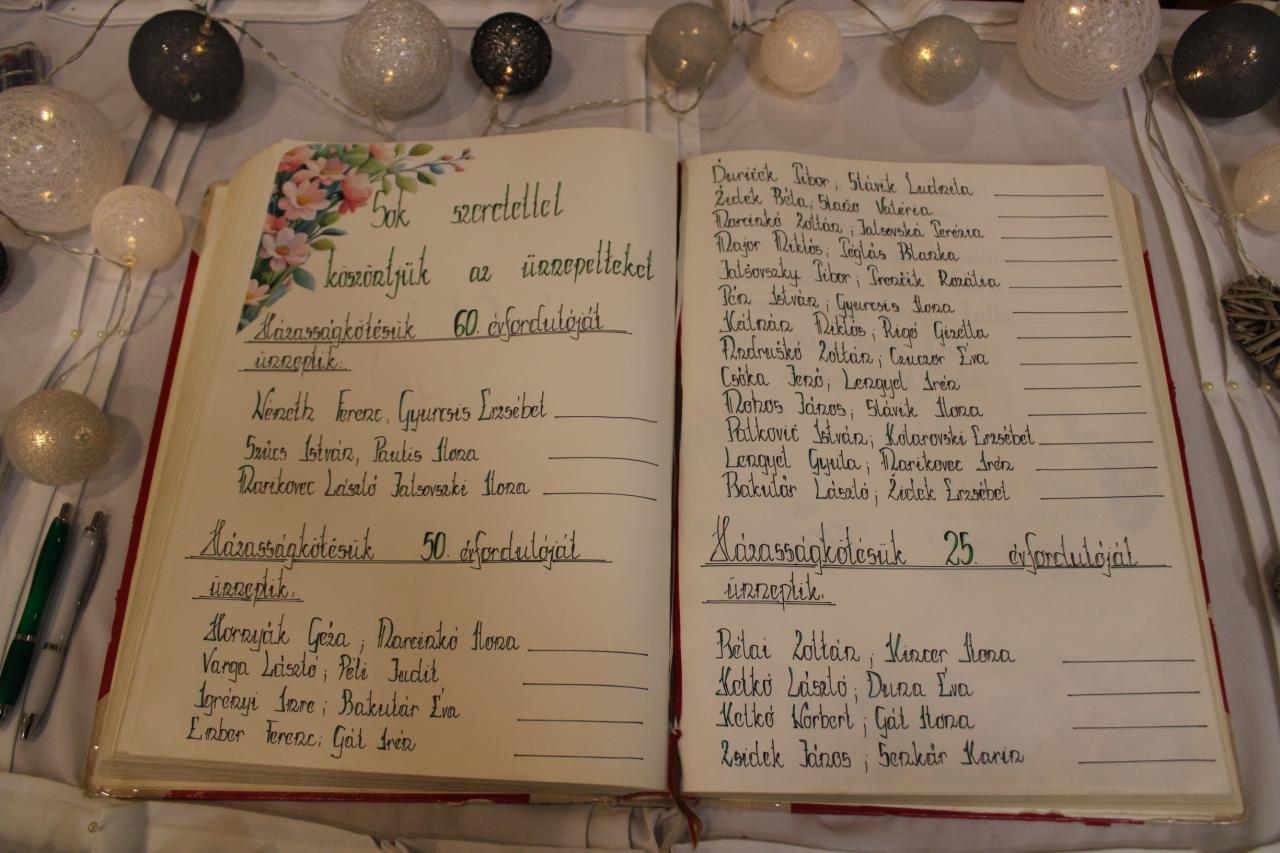 Sok szeretettel
köszöntjük az ünnepelteket
Házasságkötésük 60. évfordulóját
ünneplik:
Németh Ferenc, Gyurcsis Erzsébet
Szűcs István, Paulis Ilona
Marikovec László Jalsovszki Ilona
Házasságkötésük 50. évfordulóját
ünneplik:
Hornyák Géza ; Marcinkó Ilona
Varga László ; Péli Judit
Igrényi Imre ; Bakulár Éva
Ember Ferenc; Gál Irén
Ďuriček Tibor ; Slávik Ludmila
Židek Béla; Staňo Valéria
Marcinkó Zoltán ; Jalsovská Terézia
Major Miklós ; Téglás Blanka
Jalšovszky Tibor ; Trenčik Rozália
Pén István ; Gyurcsis Ilona
Kálmán Miklós ; Rigó Gizella
Andruskó Zoltán ; Czuczor Éva
Csóka Jenő ; Lengyel Irén
Mohos János ; Slávik Ilona
Palkovič István ; Kolarovski Erzsébet
Lengyel Gyula ; Marikovec Irén
Bakulár László ; Židek Erzsébet
Házasságkötésük 25. évfordulóját
ünneplik:
Bélai Zoltán ; Kincer Ilona
Helkó László ; Duna Éva
Helkó Norbert ; Gál Ilona
Zsidek János ; Senkár Karin